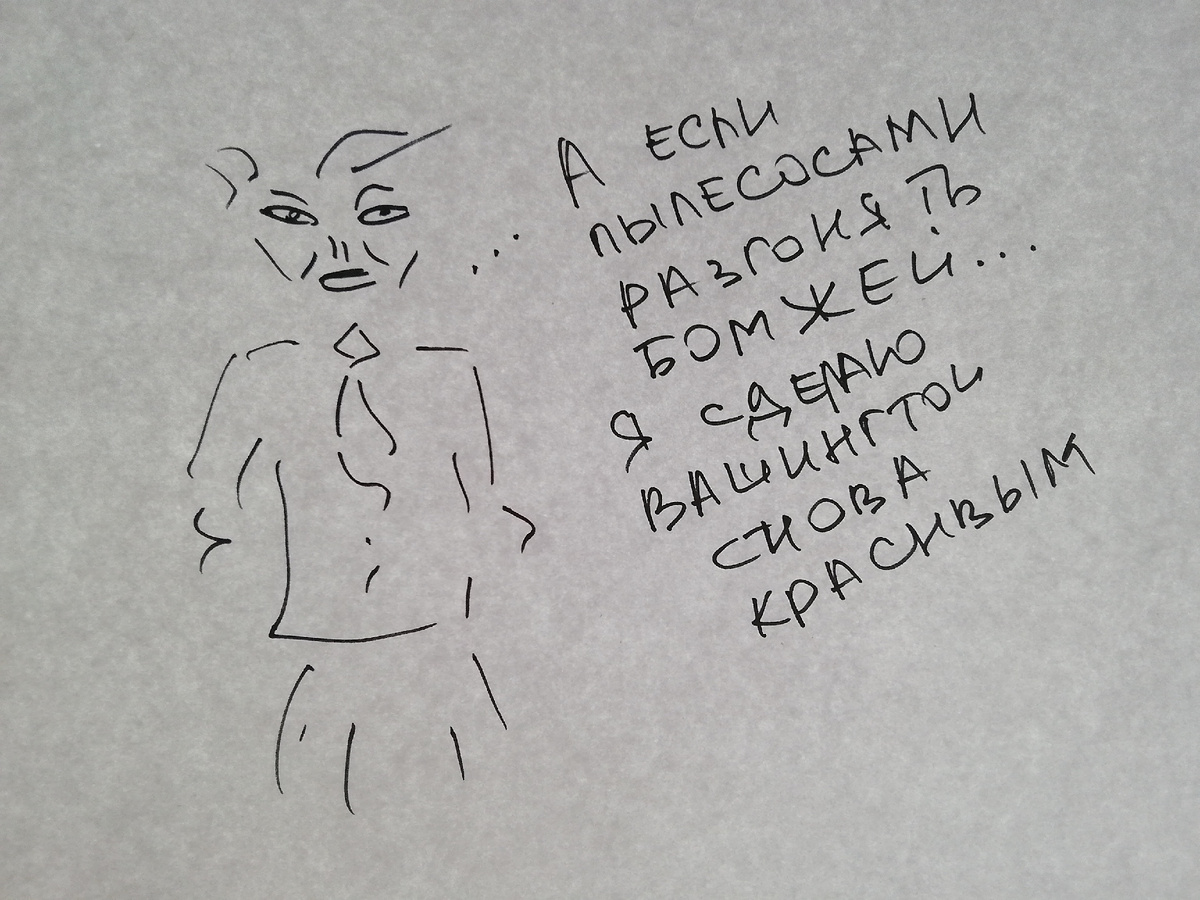 А ЕСЛИ
ПЫЛЕСОСАМИ
РАЗГОНЯТЬ
БОМЖЕЙ...
Я СДЕЛАЮ
ВАШИНГТОН
СНОВА
КРАСИВЫМ